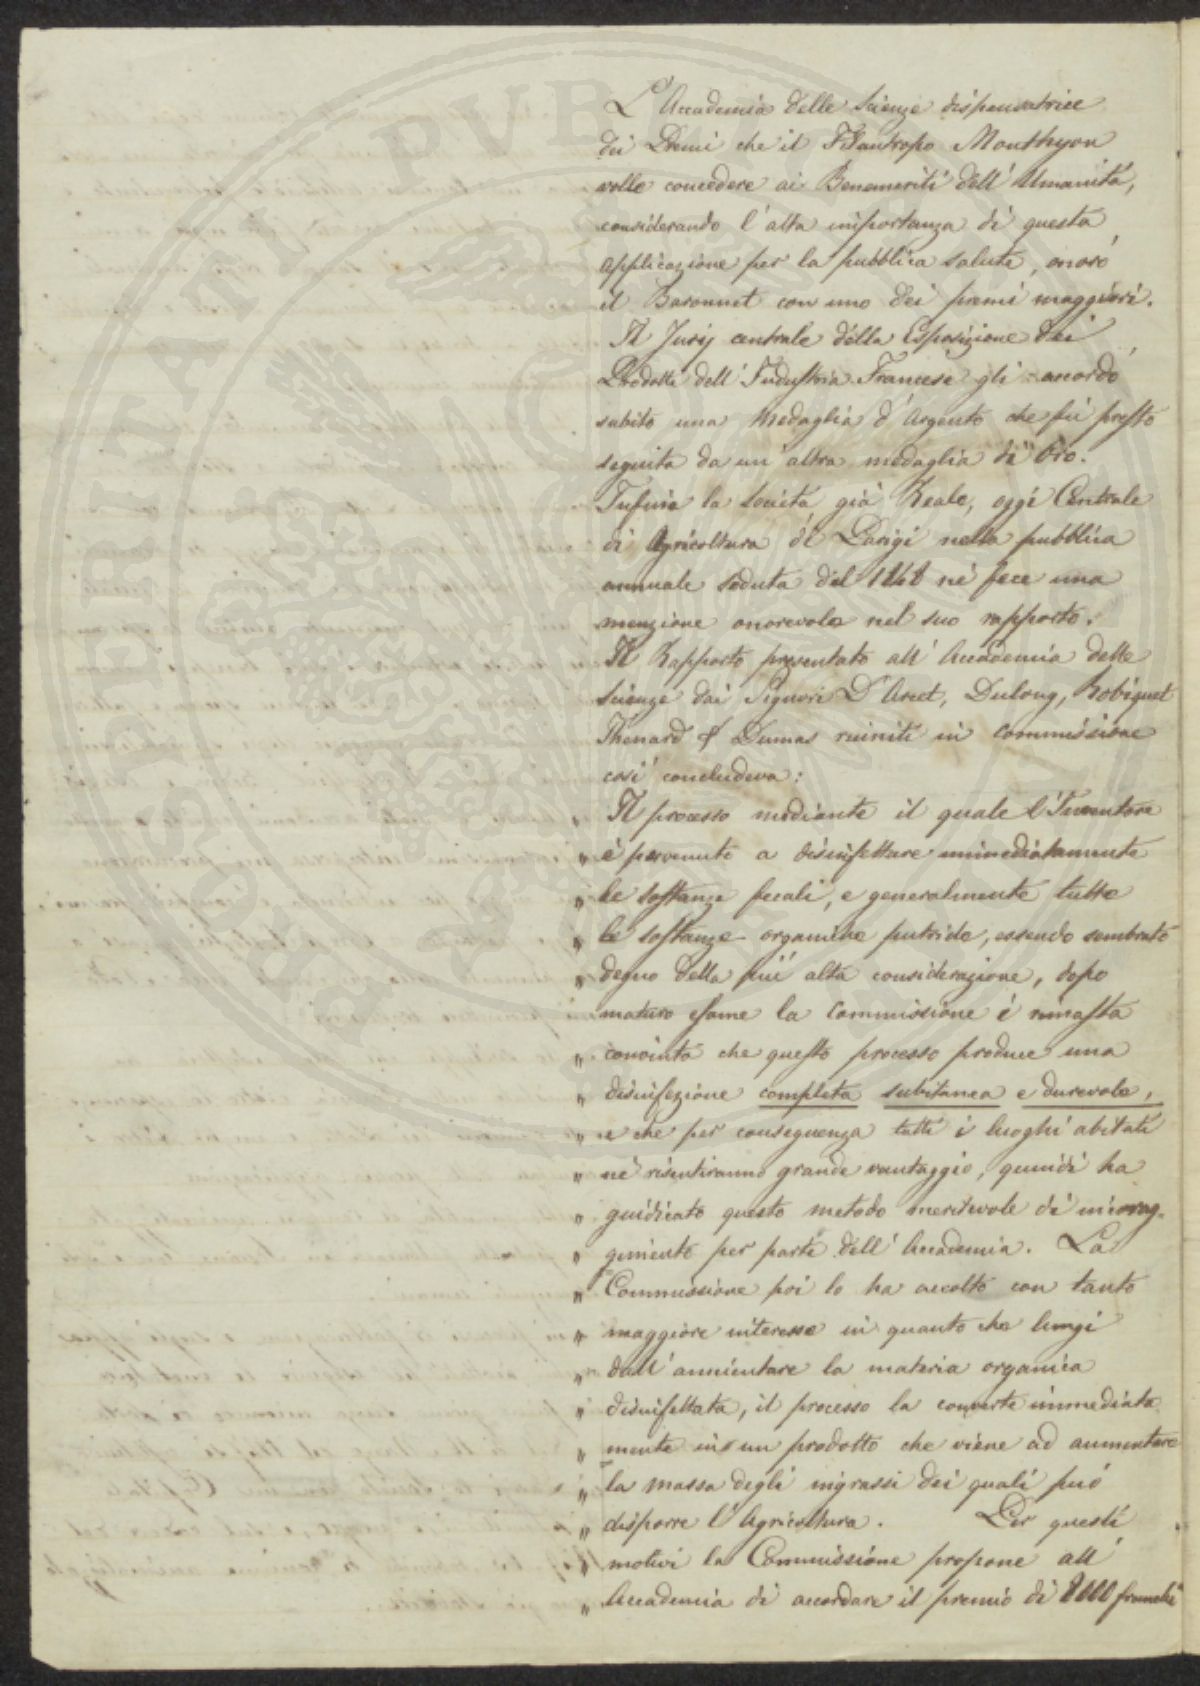 L'Accademia delle Scienze dispensatrice
dei Premi che il Filantropo Monthyon
volle concedere ai Benemeriti dell'Umanità,
considerando l'alta importanza di questa
applicazione per la pubblica salute, onorò
il Baronnet con uno dei premi maggiori.
Il Jury centrale della Esposizione dei
Prodotti dell'Industria Francese gli accordò
subito una Medaglia d'Argento che fu presto
seguita da un'altra medaglia di Oro.
Infine la Società già Reale, oggi Centrale
di Agricoltura di Parigi nella pubblica
annuale seduta del 1848 né fece una
menzione onorevole nel suo rapporto.
Il Rapporto presentato all'Accademia delle
Scienze dai Signori D'Arcet, Dulong, Robiquet
Thenard & Dumas riuniti in commissione
così concludeva:
" Il processo mediante il quale l'Inventore
" è pervenuto a disinfettare immediatamente
" le sostanze fecali, e generalmente tutte
" le sostanze organiche putride, essendo sembrato
" degno della più alta considerazione, dopo
maturo esame la Commissione è rimasta
" convinta che questo processo produce una
" disinfezione completa subitanea e durevole,
" e che per conseguenza tutti i luoghi abitati
" né risentiranno grande vantaggio, quindi ha
" giudicato questo metodo meritevole di incorag-
" gimento per parte dell'Accademia. La
" Commissione poi lo ha accolto con tanto
" maggiore interesse in quanto che lungi
" dall'annientare la materia organica
" disinfettata, il processo la converte immediata
" mente in un prodotto che viene ad aumentare
" la massa degli ingrassi dei quali può
" disporre l'Agricoltura. Per questi
" motivi la Commissione propone all'
" Accademia di accordare il premio di 8000 franchi